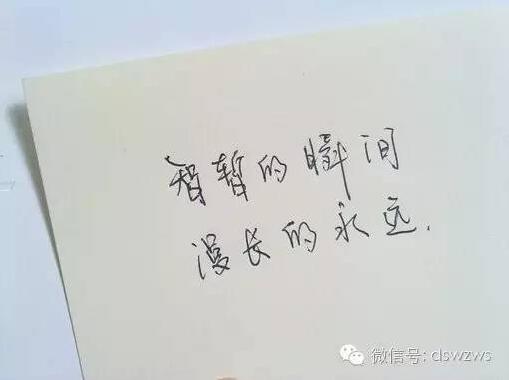 智暂的瞬间
漫长的永远.
微信号: dswzws